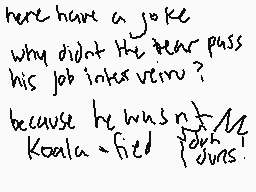 here have a joke
why didnt the bear pass
his job interveiw?
because he wasnt
Koala-fied
duh
duns!